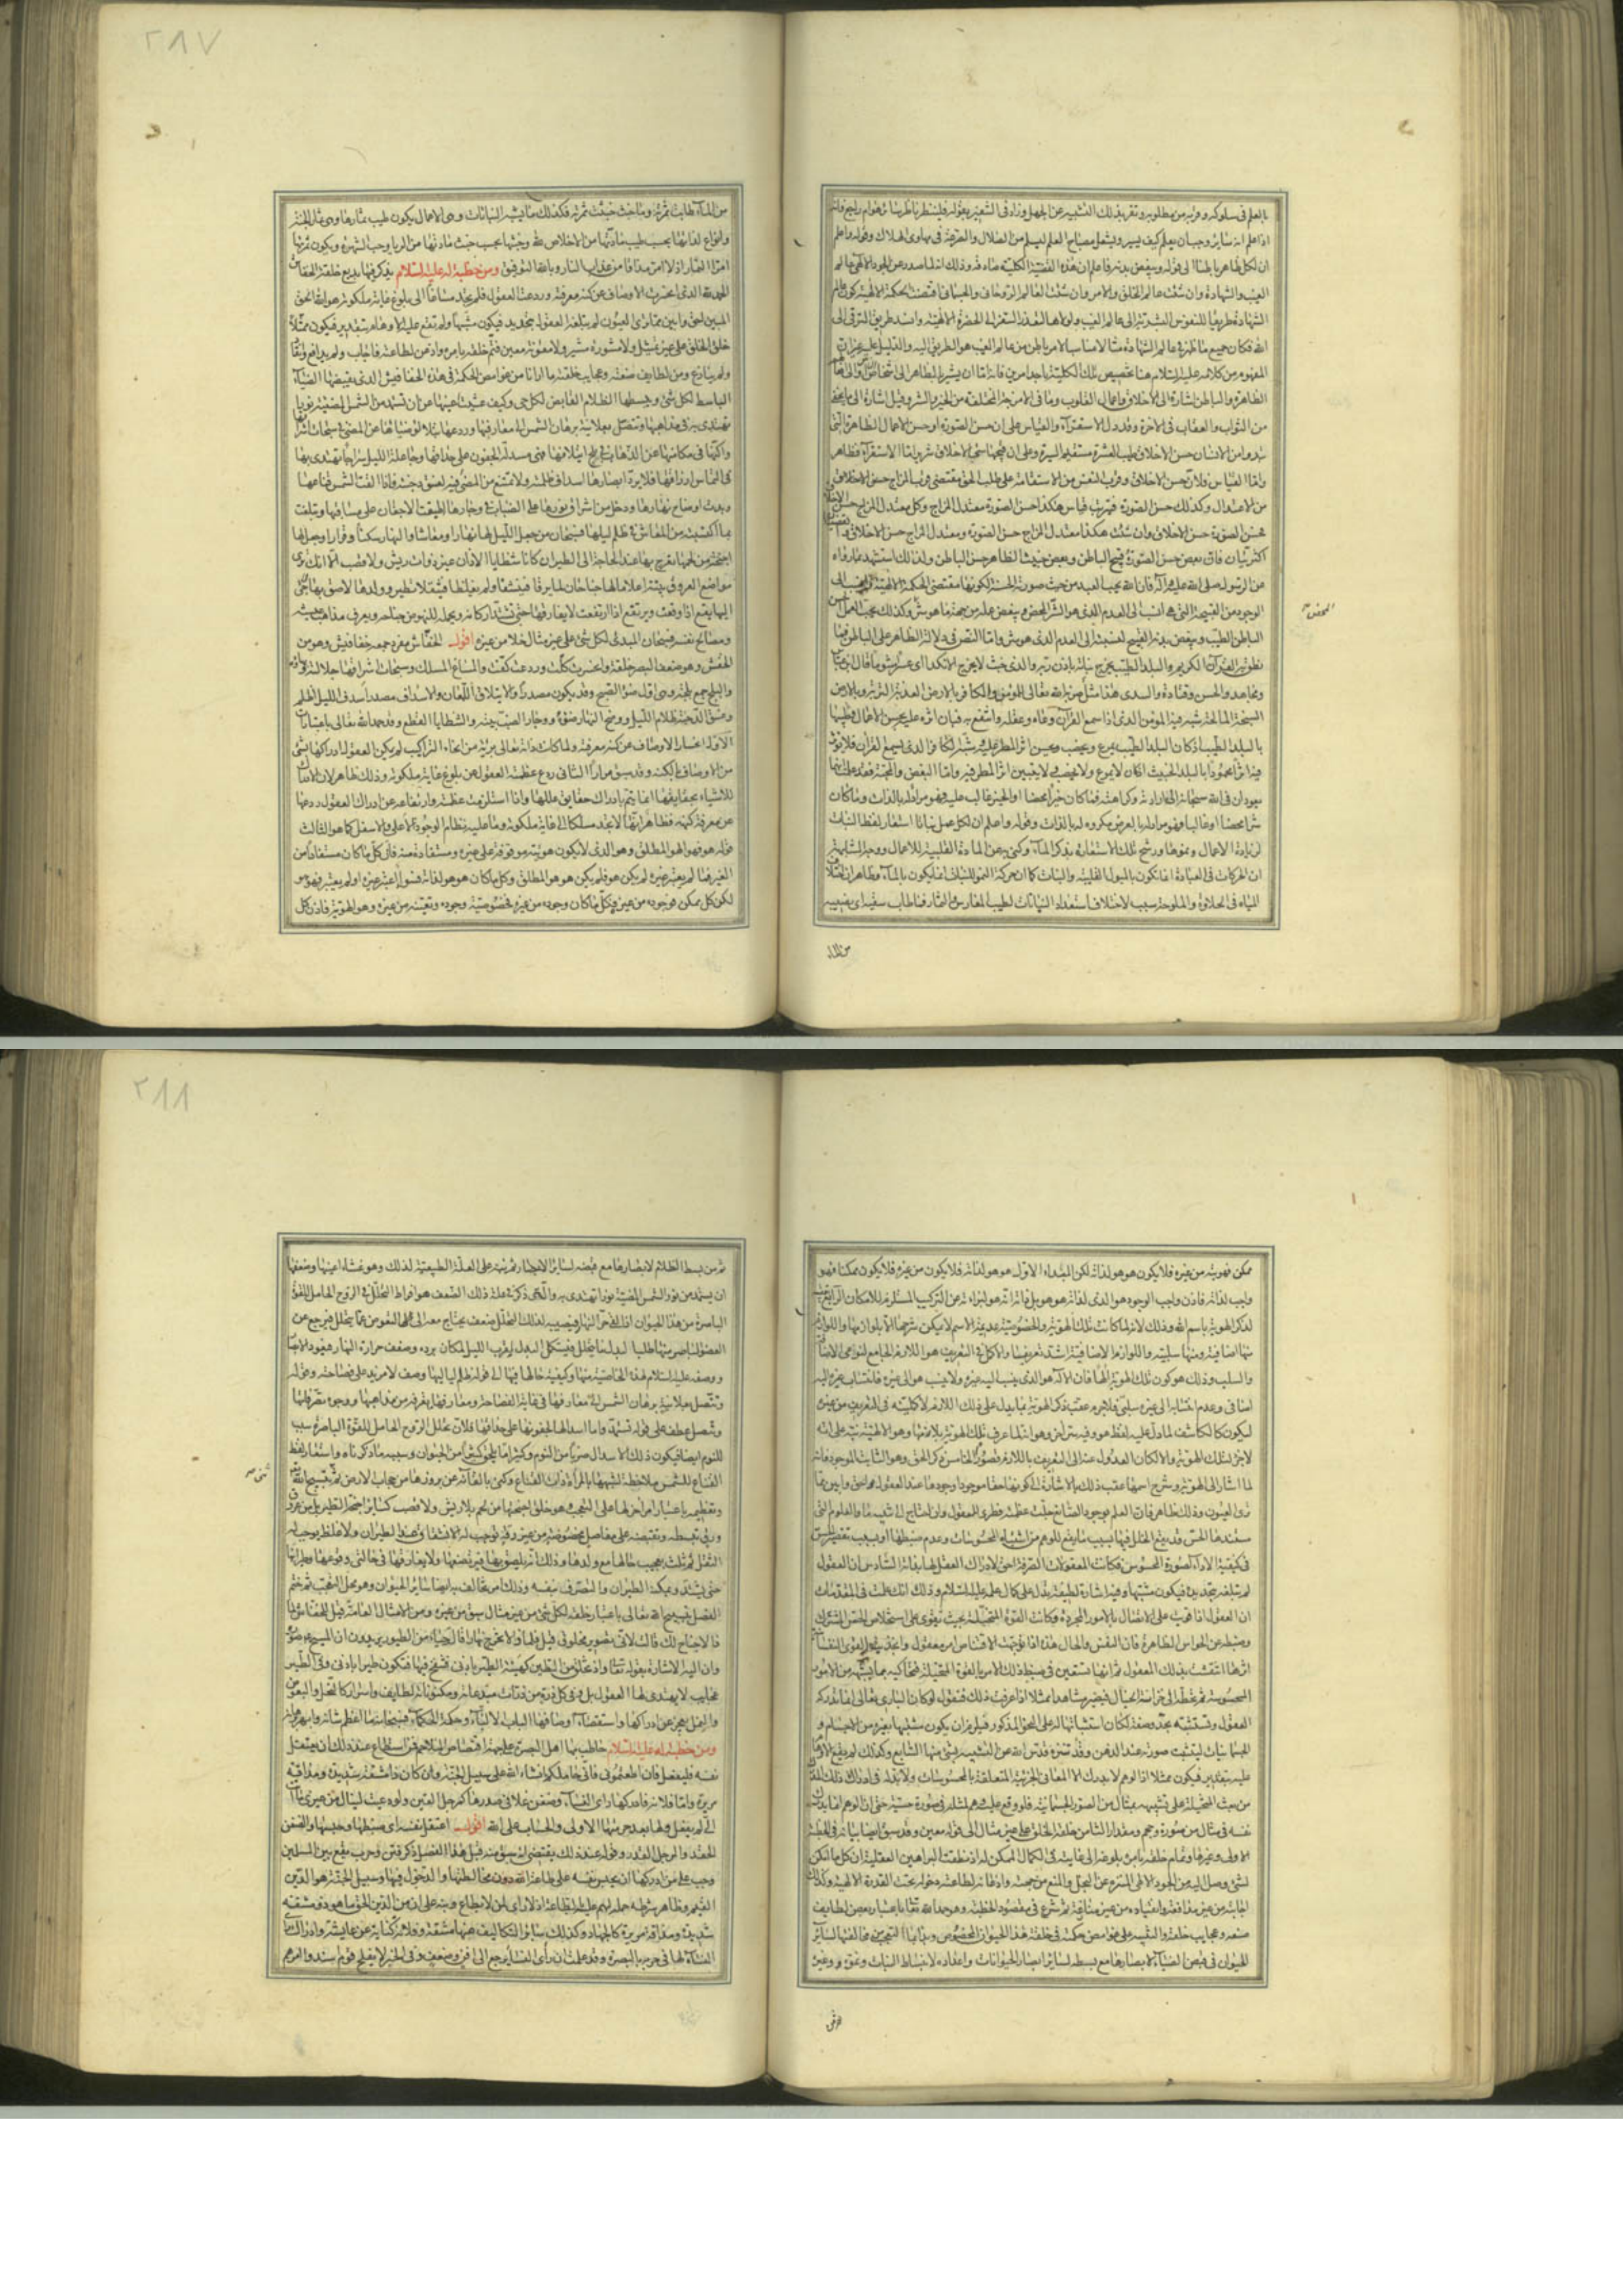 بالعلم في سلوكه وقربه من مطلوبه
اذا علم انه سائر وجب ان يعلم كيف يسير ويشعل مصباح العلم ليسلم من الضلال والصرعة في مهاوى الهلاك وقوله واعلم
ان لكل ظاهر باطنا الى قوله ويبغض بدنه فاعلم ان هذه القضية الكلية صادقة وذلك انه لما صدر عن الجود الالهي عالما
الغيب والشهادة وان شئت عالم الخلق والامر وان شئت العالم الروحاني والجسماني اقتضت الحكمة الالهية كون عالم
الشهادة طريقا للنفوس البشرية الى عالم الغيب ولولاه لتعذر السفر الى الحضرة الالهية وانسد طريق الترقي الى
الله فكان جميع ما ظهر في عالم الشهادة مثالا مناسبا لامر باطن من عالم الغيب هو الطريق اليه والدليل عليه
المفهوم من كلامه عليه السلام هنا تخصيص تلك الكلية باحد امرين فانه اما ان يشير بالظاهر الى اشخاص الناس
الظاهرة والباطن اشارة الى الاخلاق واعمال القلوب وما في الامزجة المختلفة من الخير والشر وقيل اشارة الى ما يخفى
من الثواب والعقاب في الاخرة وقد دل الاستقراء والقياس على ان حسن الصورة او حسن الاعمال الظاهرة التي
تبدو من الانسان حسن الاخلاق طيب العشرة مستقيم السيرة وعلى ان قبيحها سيئ الاخلاق شرير اما الاستقراء فظاهر
واما القياس فلان حسن الاخلاق وقرب النفس من الاستقامة على طلب الحق مقتضى قرب المزاج
من الاعتدال وكذلك حسن الصورة فترتيب قياس هكذا حسن الصورة معتدل المزاج وكل معتدل المزاج حسن الاخلاق
فحسن الصورة حسن الاخلاق وان شئت هكذا معتدل المزاج حسن الصورة ومعتدل المزاج حسن الاخلاق
اكثريتان فان بعض حسن الصورة قبيح الباطن وبعض خبيث الظاهر حسن الباطن ولذلك استشهد بما رواه
عن الرسول صلى الله عليه وآله فان الله يحب العبد من حيث صورته الحسنة لكونها مقتضى الحكمة الالهية
الوجود من القبيحة التي هي انسب الى العدم الذي هو الشر المحض ويبغض عمله من جهة ما هو شر وكذلك يحب العمل
الباطن الطيب ويبغض بدنه القبيح لنسبته الى العدم الذي هو شر واما النص في دلالة الظاهر على الباطن
نطق به القرآن الكريم والبلد الطيب يخرج نباته باذن ربه والذي خبث لا يخرج الا نكدا اي عسرا
ومجاهد والحسن وقتادة والسدي هذا مثل ضربه الله تعالى للمؤمن والكافر بالارض العذبة التربة وبالارض
السبخة المالحة شبه فيه المؤمن الذي اذا سمع القرآن وعاه وعقله وانتفع به فبان اثره عليه بحسن الاعمال وطيبها
بالبلد الطيب اذ كان البلد الطيب يمرع ويخصب ويحسن اثر المطر عليه وشبه الكافر الذي يسمع القران فلا يؤثر
فيه اثرا محمودا بالبلد الخبيث اذ كان لا يمرع ولا يخصب ولا يتبين اثر المطر فيه واما البغض والمحبة
يعودان في الله سبحانه الى ارادته وكراهته فما كان خيرا محضا او الخير غالب عليه فهو مراد له بالذات وما كان
شرا محضا او غالبا فهو مراد له بالعرض مكروه له بالذات وقوله واعلم ان لكل عمل نباتا استعار لفظ النبات
لزيادة الاعمال ونموها ورشح تلك الاستعارة بذكر الماء وكنى به عن المادة القلبية للاعمال ووجه المشابهة
ان الحركات في العبادة انما تكون بالميول القلبية والنيات كما ان حركة النمو للنبات انما يكون بالماء
المياه في الحلاوة والملوحة سبب لاختلاف استعداد النباتات لطيب المغارس والثمار فما طاب سقيه اى نصيبه
المحض صح
من الماء
٢٨٧
من الماء طابت ثمرته وما خبث خبثت ثمرته فكذلك ما يشبه النباتات وهى الاعمال يكون طيب ثمارها وهى ثمار الجنة
وانواع لذاتها بحسب طيب مادتها من الاخلاص لله وخبثها بحسب خبث مادتها من الريا وحب الشهرة ويكون ثمرتها
امر الثمار اذ لا امر مذاقا من عذاب النار وبالله التوفيق ومن خطبة له عليه السلام يذكر فيها بديع خلقة الخفاش
الحمد لله الذى انحسرت الاوصاف عن كنه معرفته وردعت عظمته العقول فلم تجد مساغا الى بلوغ غاية ملكوته هو الله الحق
المبين احق وابين مما ترى العيون لم تبلغه العقول بتحديد فيكون مشبها ولم تقع عليه الاوهام بتقدير فيكون ممثلا
خلق الخلق على غير تمثيل ولا مشورة مشير ولا معونة معين فتم خلقه بامره واذعن لطاعته فاجاب ولم يدافع وانقاد
ولم ينازع ومن لطايف صنعته وعجايب خلقته ما ارانا من غوامض الحكمة في هذه الخفافيش التى يقبضها الضياء
الباسط لكل شئ ويبسطها الظلام القابض لكل حى وكيف عشيت اعينها عن ان تستمد من الشمس المضيئة نورا
تهتدى به في مذاهبها وتتصل بعلانية برهان الشمس الى معارفها وردعها بتلألؤ ضيائها عن المضي في سبحات اشراقها
واكنها في مكامنها عن الذهاب في بلج ائتلاقها فهي مسدلة الجفون على حداقها وجاعلة الليل سراجا تهتدى به
في التماس ارزاقها فلا يرد ابصارها اسداف ظلمته ولا تمتنع من المضي فيه لغسق دجنته فاذا القت الشمس قناعها
وبدت اوضاح نهارها ودخل من اشراق نورها على الضباب في وجارها اطبقت الاجفان على مآقيها وتبلغت
بما اكتسبت من المعاش في ظلم لياليها فسبحان من جعل الليل لها نهارا ومعاشا والنهار سكنا وقرارا وجعل لها
اجنحة من لحمها تعرج بها عند الحاجة الى الطيران كانها شظايا الاذان غير ذوات ريش ولا قصب الا انك ترى
مواضع العروق بينة اعلاما لها جناحان لما يرقا فينشقا ولم يغلظا فيثقلا تطير وولدها لاصق بها لاجئ
اليها يقع اذا وقعت ويرتفع اذا ارتفعت لا يفارقها حتى تشتد اركانه ويحمله للنهوض جناحه ويعرف مذاهب عيشه
ومصالح نفسه فسبحان البارى لكل شئ على غير مثال خلا من غيره اقول الخفاش مفرد جمعه خفافيش وهو من
الخفش وهو ضعف البصر خلقة وانحسرت كلت وردعت كفت والمساغ المسلك وسبحات اشراقها جلالته وبهاؤه
والبلج جمع بلجة وهى اول ضوء الصبح وقد يكون مصدرا والائتلاق اللمعان والاسداف مصدر اسدف الليل اظلم
وغسق الدجنة ظلام الليل ووضح النهار ضوءه ووجار الضب بيته والشظايا القطع وقد حمد الله تعالى باعتبارات
الاول انحسار الاوصاف عن كنه معرفته ولما كانت ذاته تعالى برية من انحاء التراكيب لم يكن العقول ادراكها بشئ
من الاوصاف بالكنه وقد سبق مرارا الثاني ردع عظمته العقول عن بلوغ غاية ملكوته وذلك ظاهر لان الادراك
للاشياء بحقايقها انما يتم بادراك حقايق عللها واذا استلزمت عظمته وارتفاعه عن ادراك العقول ردعها
عن معرفة كنهه فظاهر انها لا تجد مسلكا الى غاية ملكوته وما عليه نظام الوجود الاعلى والاسفل كما هو الثالث
قوله هو فهو الهو المطلق وهو الذى لا تكون هويته موقوفة على غيره ومستفادة منه فان كل ما كان مستفادا من
الغير فما لم يعتبر غيره لم يكن هو فلم يكن هو هو المطلق وكل ما كان هو هو لذاته فسواء اعتبر غيره او لم يعتبر فهو هو
لكن كل ممكن فوجوده من غيره وكل ما كان وجوده من غيره فخصوصية وجوده وتعينه من غيره وهو الهوية فاذن كل
ممكن فهويته من غيره فلا يكون هو هو لذاته لكن المبداء الاول هو هو لذاته فلا يكون من غيره فلا يكون ممكنا فهو
واجب لذاته فاذن واجب الوجود هو الذى لذاته هو هو بل ذاته انه هو لبراءته عن التركيب المستلزم للامكان الرابع
لذكر الهوية باسم الله وذلك لانه لما كانت تلك الهوية والخصوصية عديمة الاسم لا يمكن شرحها الا بلوازمها واللوازم
منها اضافية ومنها سلبية واللوازم الاضافية اشد تعريفا والاكمل في التعريف هو اللازم الجامع لنوعي الاضافة
والسلب وذلك هو كون تلك الهوية الها فان الاله هو الذى ينسب اليه غيره ولا ينسب هو الى غيره فانتساب غيره اليه
اضافى وعدم انتسابه الى غيره سلبى فلا جرم عقب ذكر الهوية بما يدل على ذلك اللازم لاكمليته في التعريف من غيره
ليكون كالكاشف لما دل عليه لفظ هو
لما اشار الى الهوية وشرح اسمها عقب ذلك بالاشارة الى كونها حقا موجودا وجودها عند العقول احق وابين مما
ترى العيون وذلك ظاهر فان العلم بوجود الصانع جلت عظمته فطرى للعقول وان احتاج الى تنبيه ما والعلوم التى
مستندها الحس قد يقع الخلل فيها بسبب ما يقع للوهم من اشتباه المحسوسات وعدم ضبطها او بسبب تقصير الحس
في كيفية الاداء لصورة المحسوس فكانت المعقولات الصرفة احق لادراك العقل لها بذاته السادس ان العقول
لم تبلغه بتحديد فيكون مشبها وفيه اشارة لطيفة تدل على كمال علمه عليه السلام وذلك انك علمت في المقدمات
ان العقول اذا قويت على الاتصال بالامور المجردة وكانت القوة المتخيلة بحيث تقوى على استخلاص الحس المشترك
وضبطه عن الحواس الظاهرة فان النفس والحال هذه اذا توجهت لاقتناص امر معقول
اثرها انتقشت بذلك المعقول ثم انها تستعين في ضبط ذلك الامر بالقوة المتخيلة فتحاكيه بما يشبهه من الامور
المحسوسة ثم تحطه الى خزانة الخيال فيصير مشاهدا ممثلا اذا عرفت ذلك فنقول لو كان البارى تعالى مما تدركه
العقول وتستثبته بحد وصفة لكان استثباتها له على النحو المذكور فيلزم ان يكون مشبها بغيره من الاجسام و
الجسمانيات ليثبت صورته عند الذهن وقد تنزه قدس الله عن التشبيه بشئ منها السابع وكذلك لم تقع الاوهام
عليه بتقدير فيكون ممثلا اذ الوهم لا يدرك الا المعانى الجزئية المتعلقة بالمحسوسات ولا بد له في ادراك ذلك
من بعث المتخيلة على تشبيهه بمثال من الصور الجسمانية فلو وقع عليه وهم لمثله في صورة حسية حتى ان الوهم انما يدرك
نفسه في مثال من صورة وحجم ومقدار الثامن خلقه الخلق على غير مثال الى قوله معين وقد سبق ايضا بيانه في الخطبة
الاولى وغيرها وتمام خلقه بامره بلوغه الى غايته في الكمال الممكن له اذ نطقت البراهين العقلية ان كل ما امكن
لشئ وصل اليه من الجود الالهى المنزه عن البخل والمنع من جهته واذعانه لطاعته دخوله تحت القدرة الالهية وكذلك
اجابته من غير مدافعة وانقياده من غير منازعة ثم شرع في مقصود الخطبة وهو حمد الله تعالى باعتبار بعض لطايف
صنعه وعجايب خلقه والتنبيه على غوامض حكمته في خلقة هذا الحيوان المخصوص
الحيوان في قبض الضياء لابصارها مع بسطه لسائر ابصار الحيوانات واعداده لانبساط النبات ونموه وغيره
عرفى
٢٨٨
ثم من بسط الظلام لابصارها مع قبضه لسائر الابصار ثم نبه على العلة الطبيعية لذلك وهو عشاء اعينها وضعفها
ان يستمد من نور الشمس المضيئة نورا تهتدى به والذى ذكر في علة ذلك الضعف هو افراط التحلل في الروح الحامل للقوة
الباصرة من هذا الحيوان اذا لقي حر النهار فيصيبه لذلك التحلل ضعف يحتاج معه الى التعوض عما يتحلل فيرجع عن
العضو الباصر منها طلبا لبدل ما يتحلل فيستكمل البدل بقرب الليل لمكان برده وضعف حرارة النهار فيعود الابصار
ووصفه عليه السلام لهذه الخاصية منها وكيفية حالها فيها الى قوله ظلم لياليها وصف لا مزيد على فصاحته وقوله
وتتصل بعلانية برهان الشمس الى معارفها في غاية الفصاحة ومعارفها ما تعرفه من مذاهبها ووجوه تصرفاتها
وتتصل عطف على قوله تستمد واما اسدالها لجفونها على حداقها فلان تحلل الروح الحامل للقوة الباصرة سبب
للنوم ايضا فيكون ذلك الاسدال ضربا من النوم وكثيرا ما يلحق كثيرا من الحيوان وسببه ما ذكرناه واستعار لفظ
القناع للشمس ملاحظة لشبهها بالمرأة ذات القناع وكنى بالقائه عن بروزها من حجاب الارض ثم تسبيح الله
وتعظيمه باعتبار امر آخر لها على التعجب وهو خلق اجنحتها من لحم بلا ريش ولا قصب كسائر اجنحة الطير بل من عروق
ورق تبسطه وتقبضه على مفاصل مخصوصة من غير رقة توجب له الانشقاق عند الطيران ولا غلظ يوجب له
الثقل ثم ثلث بعجيب حالها مع ولدها وذلك انه يلصق بها فترضعه ولا يفارقها في حالتى وقوعها وطيرانها
حتى يشتد ويمكنه الطيران والتصرف بنفسه وذلك امر يخالف به ايضا سائر الحيوان وهو محل التعجب ثم ختم
الفصل بتسبيح الله تعالى باعتبار خلقه لكل شئ من غير مثال سبق من غيره ومن الامثال العامة قيل للخفاش لماذا
لا جناح لك قالت لانى تصوير مخلوق قيل فلماذا لا تخرج نهارا قال حياء من الطيور يريدون ان المسيح عم صوره
وان اليه الاشارة بقوله تعالى واذ تخلق من الطين كهيئة الطير باذنى فتنفخ فيها فتكون طيرا باذنى وفي الطير
عجايب لا يهتدى لها العقول بل وفي كل ذرة من ذرات مبدعاته ومكنوناته لطايف واسرار كالنحل والبعوض
والنمل يعجز عن ادراكها واستقصاء اوصافها الباب الالباء وحكمة الحكماء فسبحانه ما اعظم شانه وابهر برهانه
ومن خطبة له عليه السلام خاطب بها اهل البصرة على جهة اقتصاص الملاحم فمن استطاع عند ذلك ان يعتقل
نفسه فليفعل فان اطعتمونى فانى حاملكم ان شاء الله على سبيل الجنة وان كان ذا مشقة شديدة ومذاقة
مريرة واما فلانة فادركها راى النساء وضغن غلا في صدرها كمرجل القين ولو دعيت لتنال من غيرى ما اتت
الى لم تفعل ولها بعد حرمتها الاولى والحساب على الله اقول اعتقل نفسه اى ضبطها وحبسها والضغن
الحقد والمرجل القدر وقوله عند ذلك يقتضى انه سبق منه قبل هذا الفصل ذكر فتن وحرب تقع بين المسلمين
وجب على من ادركها ان يحبس نفسه على طاعة الله دون مخالطتها والدخول فيها وسبيل الجنة هو الدين
القيم وظاهر شرطه حمله لهم عليه بالطاعة اذ لا راى لمن لا يطاع ونبه على ان من الدين الحق ما هو ذو مشقة
شديدة ومذاقة مريرة كالجهاد وكذلك سائر التكاليف فيها مشقة وفلانة كناية عن عايشة وادراك راى
النساء لها في حربها بالبصرة وقد علمت ان رأى النساء يرجع الى افن وضعف وفي الخبر لا يفلح قوم اسندوا امرهم
شى صح